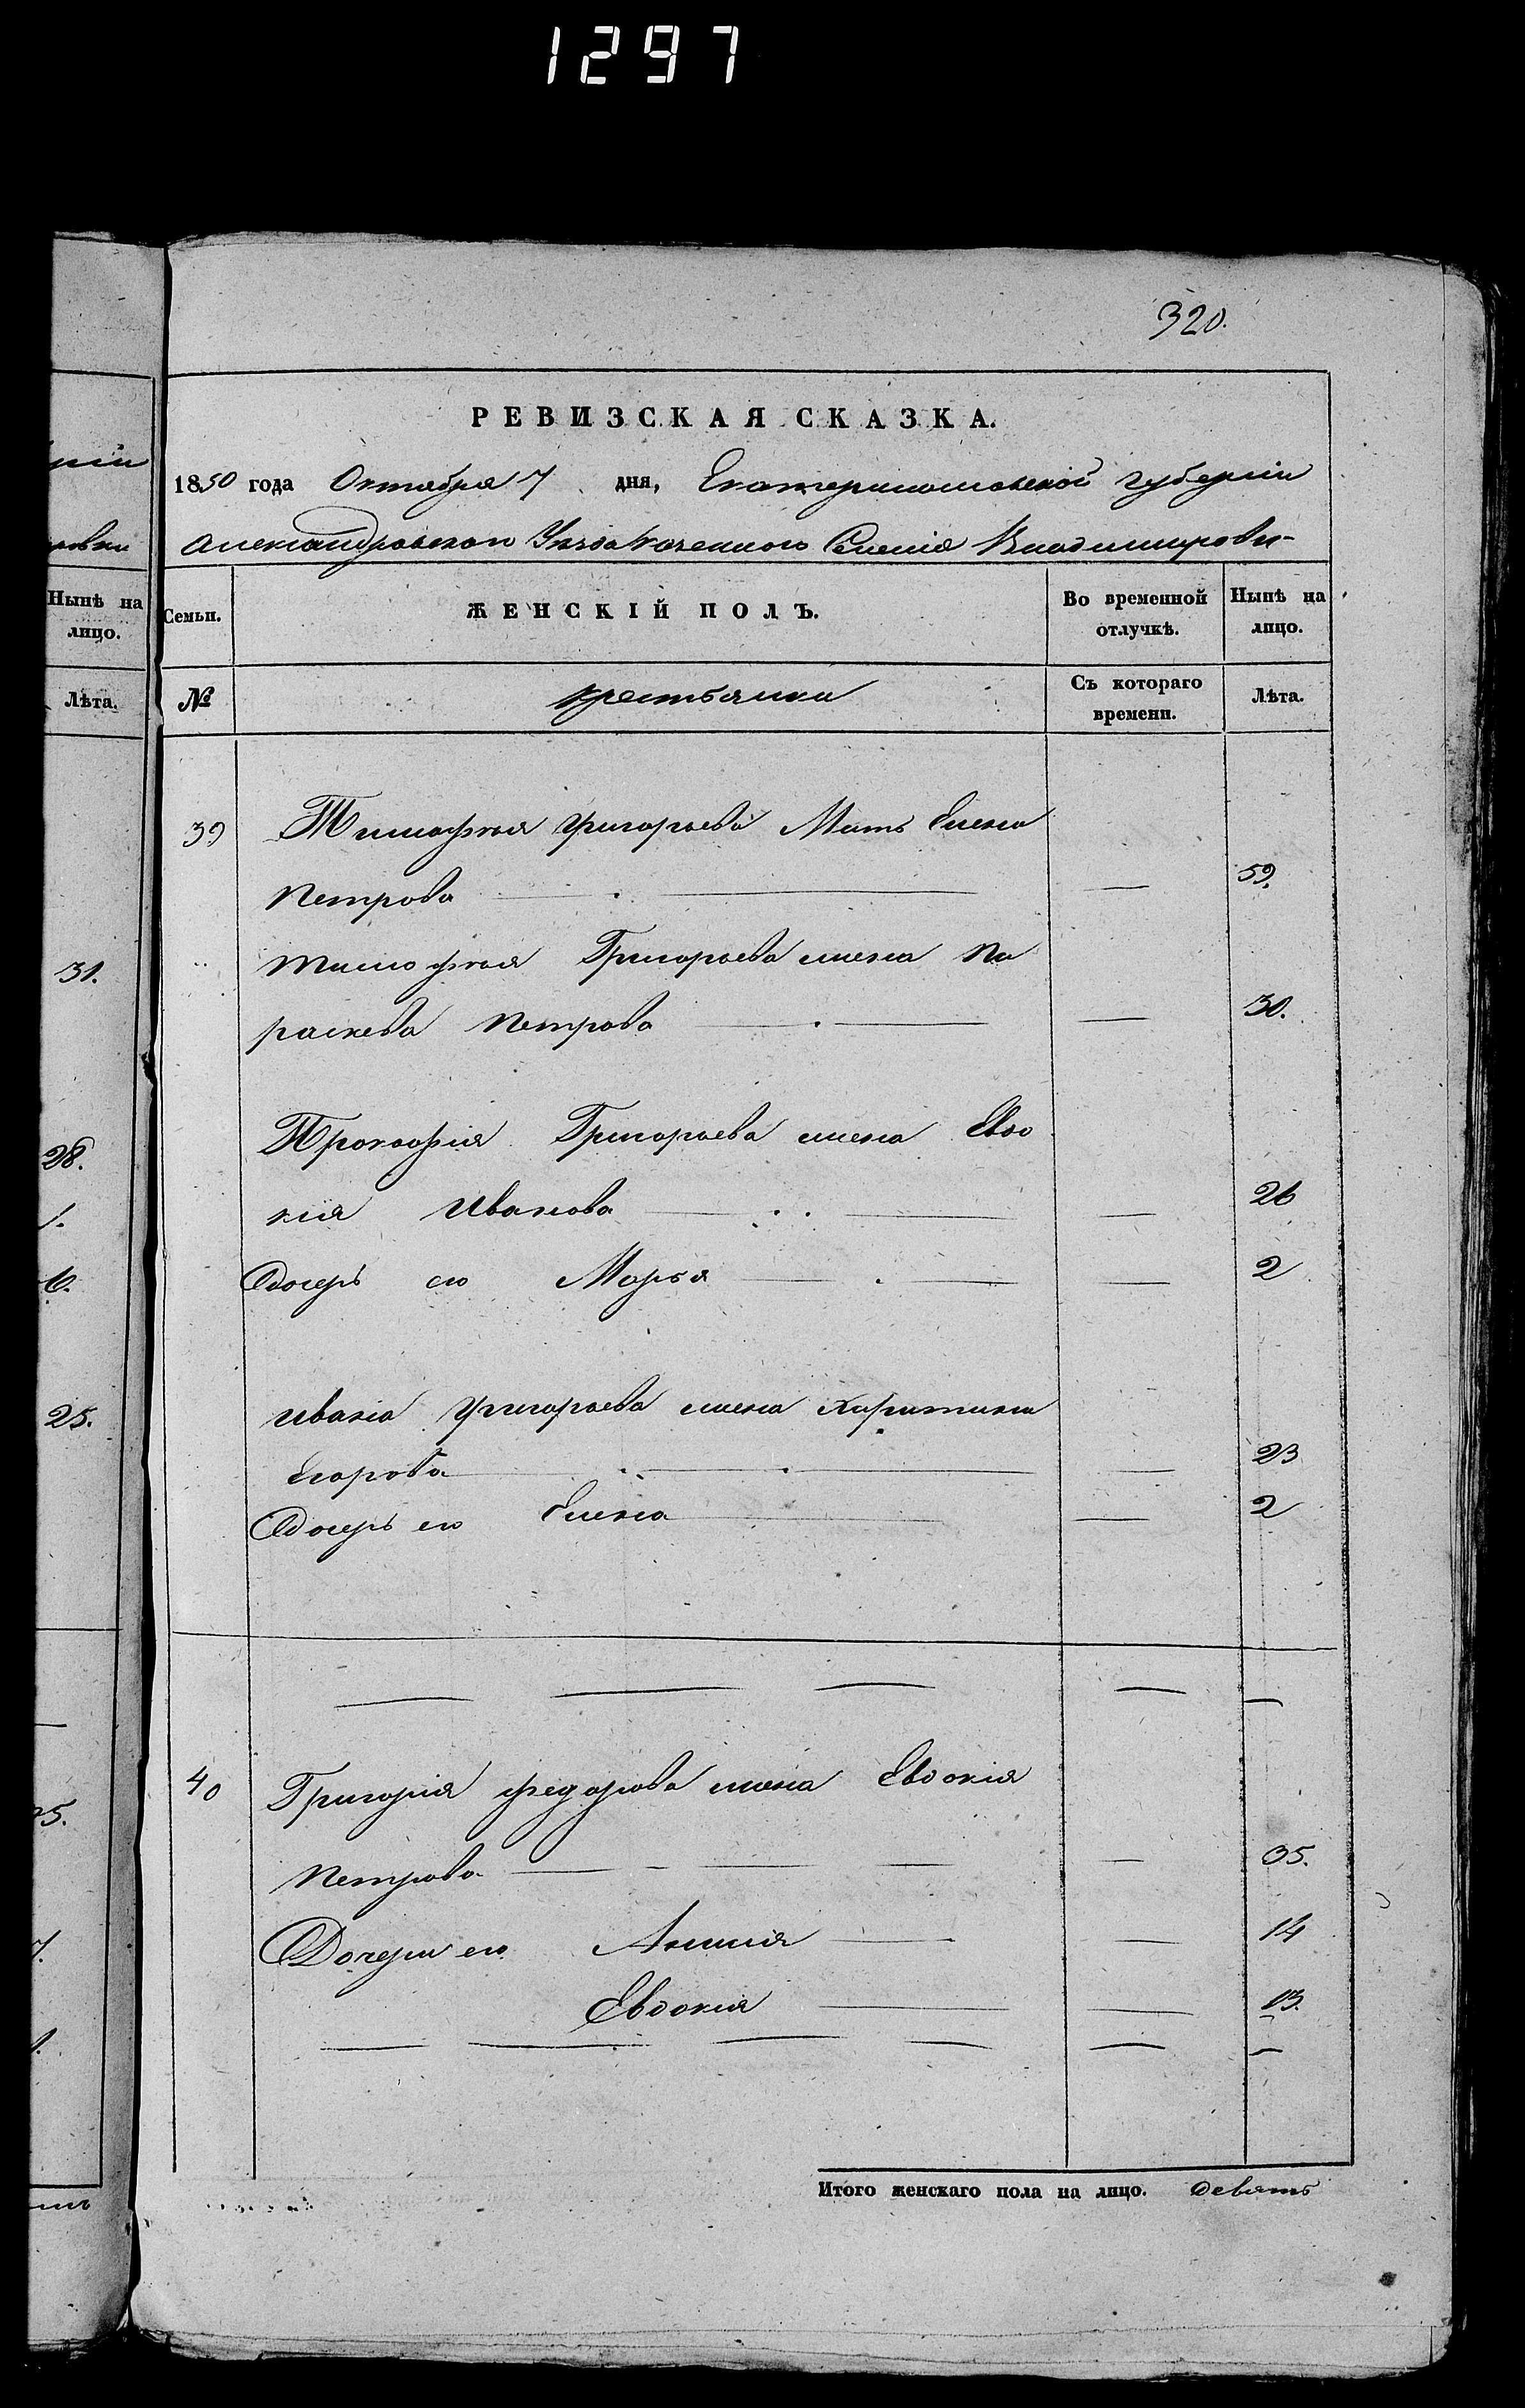 1297
320.
РЕВИЗСКАЯ СКАЗКА.
рніи
1850 года Октября 7 дня, Екатеринославской губерніи
ровки
Александровскаго Уѣзда Казеннаго Селенія Владимировки
Нынѣ на лицо.
Семьи.
ЖЕНСКІЙ ПОЛЪ.
Во временной отлучкѣ.
Нынѣ на лицо.
Лѣта.
№
крестьянки
Съ котораго времени.
Лѣта.
39 Тимофѣя Григорьева Мать Елена
Петрова — 59.
Тимофѣя Григорьева жена Па
31.
раскева Петрова — 30.
Прокофія Григорьева жена Евдо
28.
кія Иванова — 26
1.
Дочерь его Марья — 2
6.
Ивана Григорьева жена Харитина
25.
Егорова — 23
Дочерь его Елена — 2
40 Григорія Федорова жена Евдокія
25.
Петрова — 35.
Дочери его Аксинія — 14
7.
Евдокія — 13.
1.
Итого женскаго пола на лицо. девять